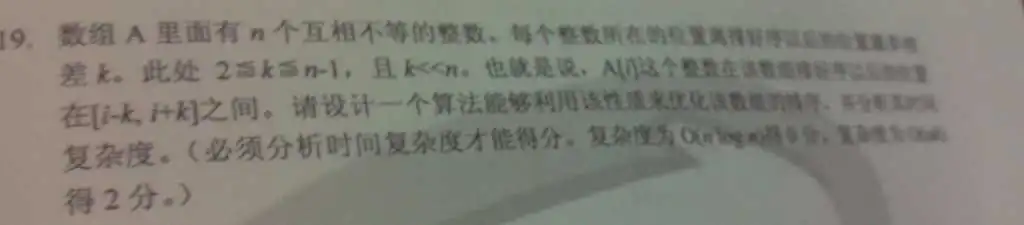 19. 数组 A 里面有 n 个互相不等的整数。每个整数所在的位置离排好序以后的位置最多相
差 k。此处 2≦k≦n-1，且 k<<n。也就是说，A[i]这个整数在该数组排好序以后的位置
在[i-k, i+k]之间。请设计一个算法能够利用该性质来优化该数组的排序，并分析其时间
复杂度。（必须分析时间复杂度才能得分。复杂度为 O(n log n)得 0 分，复杂度为 O(nk)
得 2 分。）